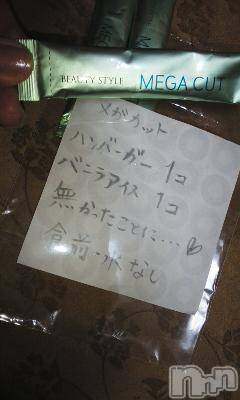 BEAUTY STYLE MEGA CUT
メガカット
ハンバーガー 1コ
バニラアイス 1コ
無かったことに…♡
食前・水なし